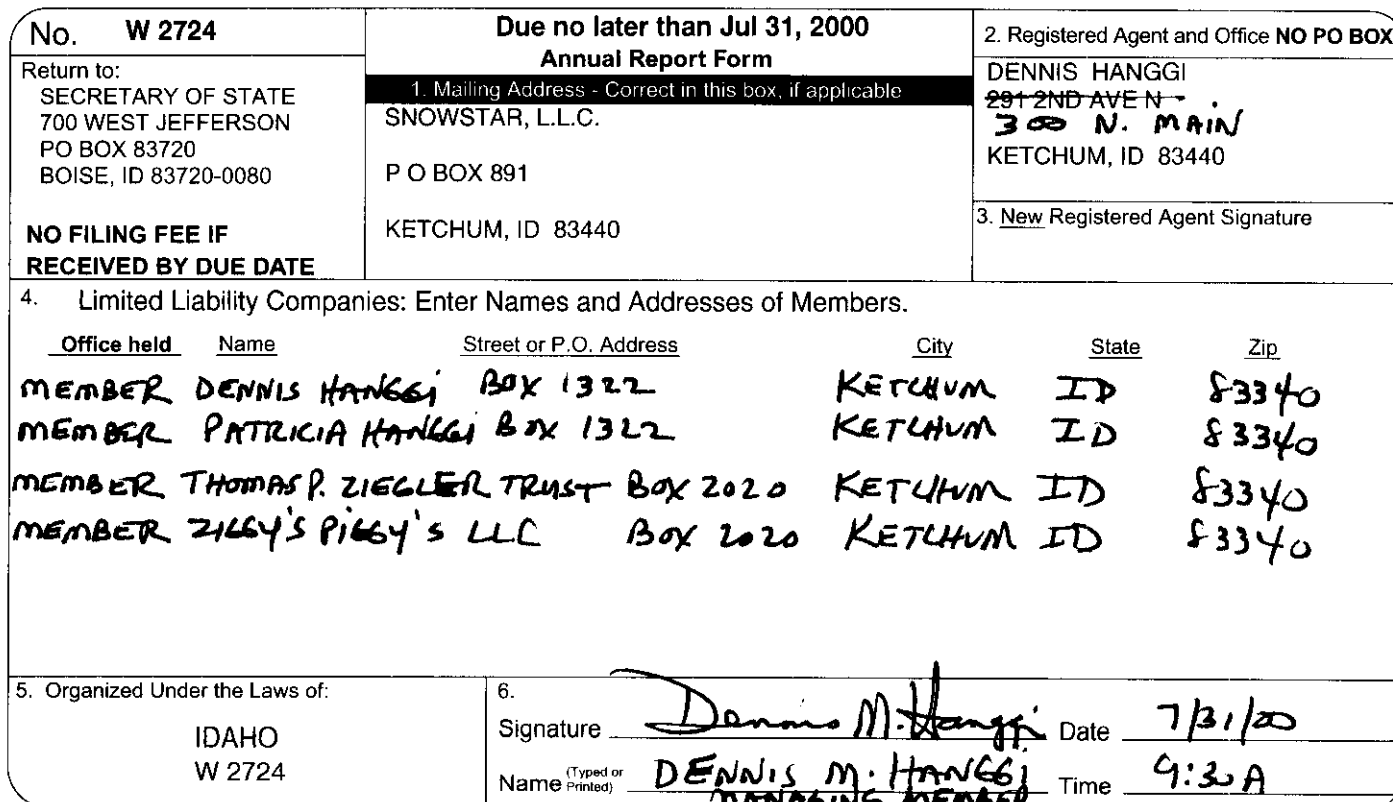 No. W 2724
Return to:
SECRETARY OF STATE
700 WEST JEFFERSON
PO BOX 83720
BOISE, ID 83720-0080
NO FILING FEE IF
RECEIVED BY DUE DATE
Due no later than Jul 31, 2000
Annual Report Form
1. Mailing Address - Correct in this box, if applicable
SNOWSTAR, L.L.C.
P O BOX 891
KETCHUM, ID 83440
2. Registered Agent and Office NO PO BOX
DENNIS HANGGI
291 2ND AVE N
300 N. MAIN
KETCHUM, ID 83440
3. New Registered Agent Signature
4. Limited Liability Companies: Enter Names and Addresses of Members.
Office held Name Street or P.O. Address City State Zip
MEMBER DENNIS HANGGI BOX 1322 KETCHUM ID 83340
MEMBER PATRICIA HANGGI BOX 1322 KETCHUM ID 83340
MEMBER THOMAS P. ZIEGLER TRUST BOX 2020 KETCHUM ID 83340
MEMBER ZIGGY'S PIGGY'S LLC BOX 2020 KETCHUM ID 83340
5. Organized Under the Laws of:
IDAHO
W 2724
6.
Signature Dennis M. Hanggi Date 7/31/00
Name (Typed or Printed) DENNIS M. HANGGI Time 9:30 A
MANAGING MEMBER